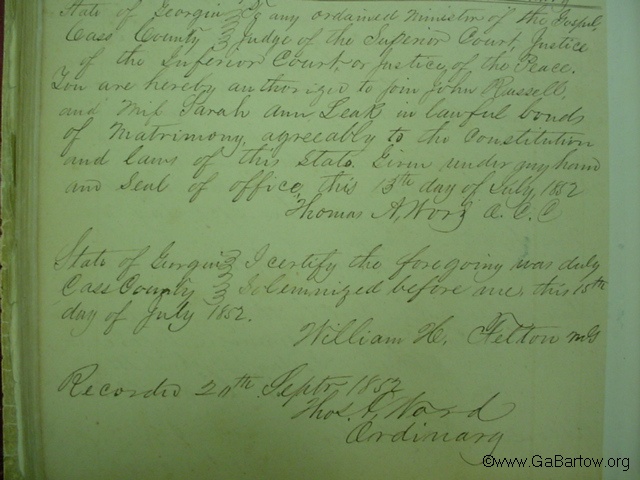 State of Georgia } To any ordained minister of the Gospel,
Cass County } Judge of the Superior Court, Justice
of the Inferior Court or Justice of the Peace.
You are hereby authorized to join John Russell,
and Miss Sarah Ann Leak in lawful bonds
of Matrimony, agreeably to the Constitution
and laws of this State. Given under my hand
and Seal of office, this 13th day of July, 1852
Thomas A, Word O. C. C
State of Georgia } I certify the foregoing was duly
Cass County } Solemnized before me, this 15th
day of July 1852.
William H, Felton MG
Recorded Septr 1852
Thos. A, Word
Ordinary
©www.GaBartow.org